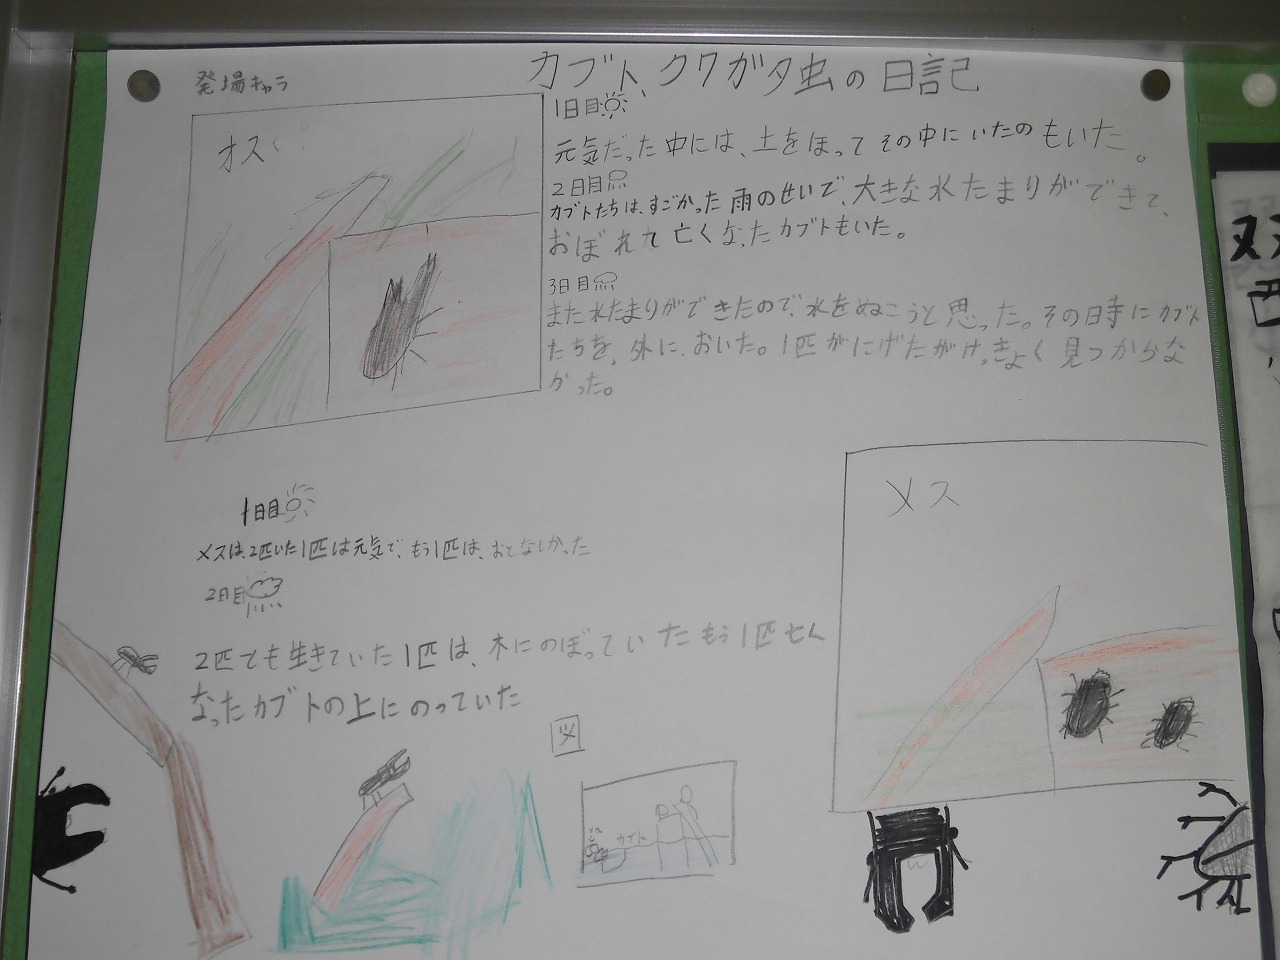 カブト、クワガタ虫の日記
発場キャラ
オス
1日目
元気だった中には、土をほってその中にいたのもいた。
2日目
カブトたちは、すごかった雨のせいで、大きな水たまりができて、
おぼれて亡くなったカブトもいた。
3日目
また水たまりができたので、水をぬこうと思った。その日時にカブト
たちを、外に、おいた。1匹がにげたがけっきょく見つからな
かった。
1日目
メスは、2匹いた1匹は元気で、もう1匹は、おとなしかった
2日目
2匹とも生きていた1匹は、木にのぼっていたもう1匹亡く
なったカブトの上にのっていた
メス
図
カブト